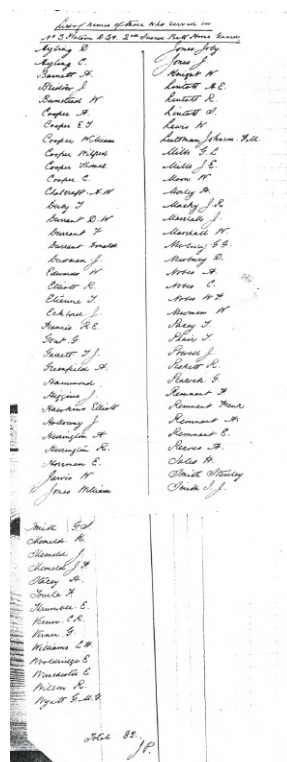 List of names of those who served in
No 3 Platoon A Coy. 2nd Sussex Batt Home Guard
Ayling D
Ayling C.
Barnett A.
Bristow J
Bumstead W
Cooper A
Cooper E J.
Cooper William
Cooper Wilfred
Cooper Thomas
Cooper C.
Chalcraft A. W
Derby T
Durrant D. W
Durrant F
Durrant Donald
Dudman J.
Edwards W
Elliott R.
Etienne T.
Eckford J.
Francis R E.
Gent G
Garrett T J.
Greenfield A.
Hammond
Higgins J
Hawkins Elliott
Holloway J
Herrington A
Herrington R.
Horman E.
Jarvis W
Jones William
Jones Joby
Jones J.
Knight W
Lintott A. E.
Lintott R.
Lintott S.
Lears W
Luttman Johnson. F M.
Mills G L
Mills J E.
Moon W
Morley A.
Macky J. R
Marshall J.
Marshall W.
Newbury D.
Nobes A.
Nobes C.
Nobes W F
Newman W
Phair T.
Powell J.
Peskett R.
Peacock G.
Remnant F
Remnant Frank
Remnant A.
Remnant E.
Reeves A.
Sales H.
Smith Stanley
Smith S. J.
Smith G. S.
Shemeld R.
Shemeld J.
Shemeld J. F
Stacey A.
Thrumble E.
Verner C R.
Verner G.
Williams L H.
Wooldridge E
Winchester E
Wilson R.
Wyatt G. M. G
Total 82.
J P.